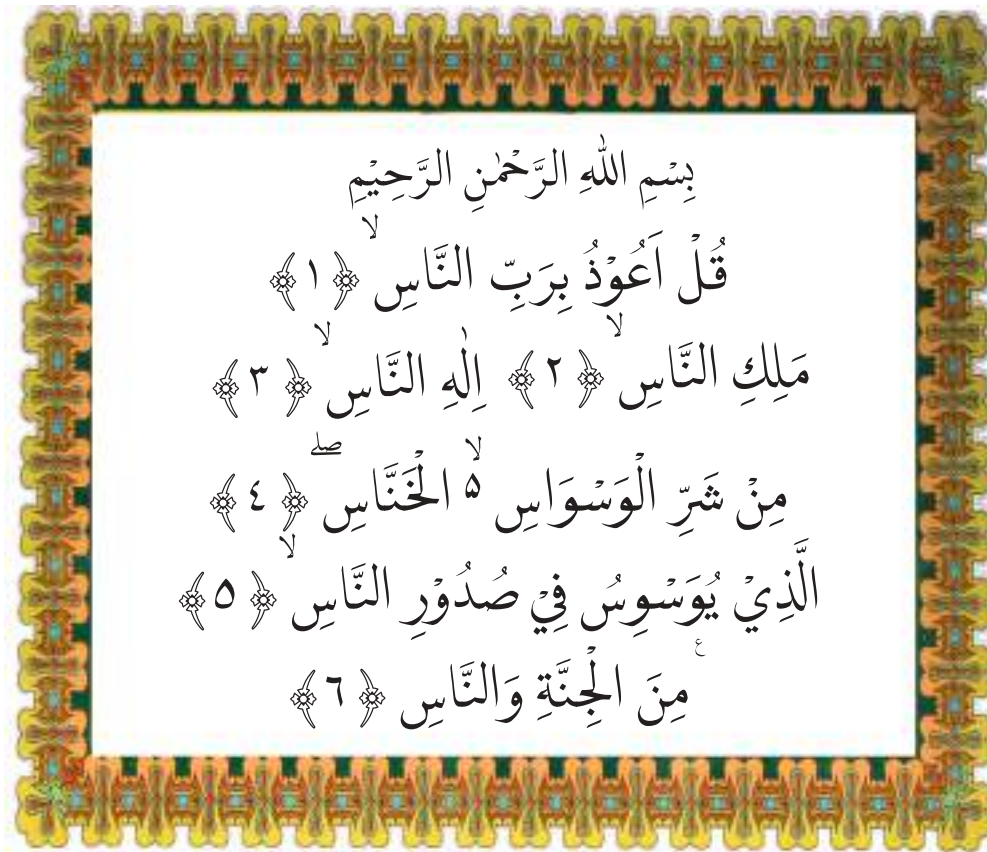 بِسْمِ اللّٰهِ الرَّحْمٰنِ الرَّحِيْمِ
قُلْ اَعُوْذُ بِرَبِّ النَّاسِ ۙ ﴿١﴾
مَلِكِ النَّاسِ ۙ ﴿٢﴾ اِلٰهِ النَّاسِ ۙ ﴿٣﴾
مِنْ شَرِّ الْوَسْوَاسِ ۙ۵ الْخَنَّاسِ ۖ ﴿٤﴾
الَّذِيْ يُوَسْوِسُ فِيْ صُدُوْرِ النَّاسِ ۙ ﴿٥﴾
مِنَ الْجِنَّةِ وَالنَّاسِ ع ﴿٦﴾